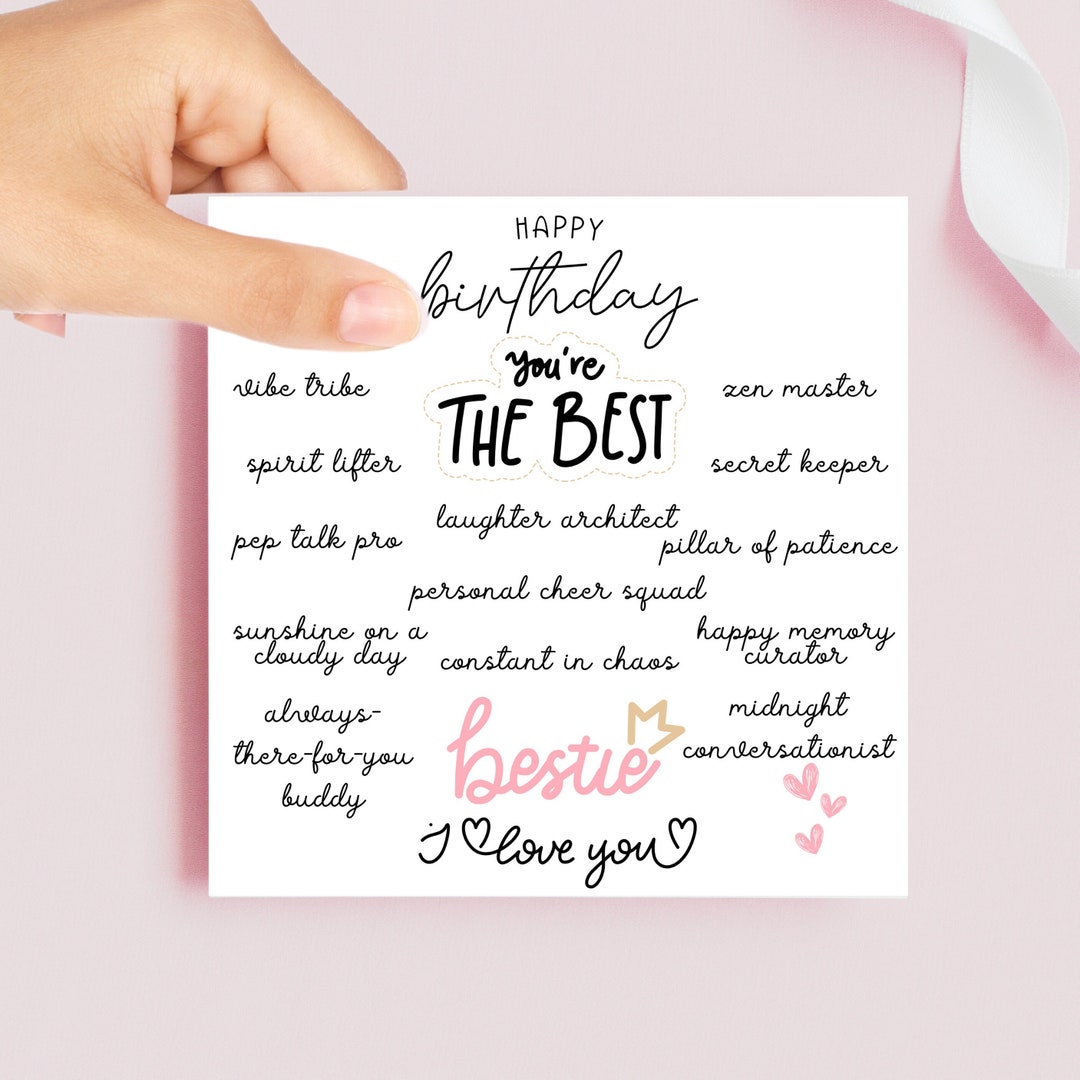 HAPPY
birthday
you're
THE BEST
vibe tribe
zen master
spirit lifter
secret keeper
laughter architect
pep talk pro
pillar of patience
personal cheer squad
sunshine on a
cloudy day
happy memory
curator
constant in chaos
always-
there-for-you
buddy
midnight
conversationist
bestie
i love you